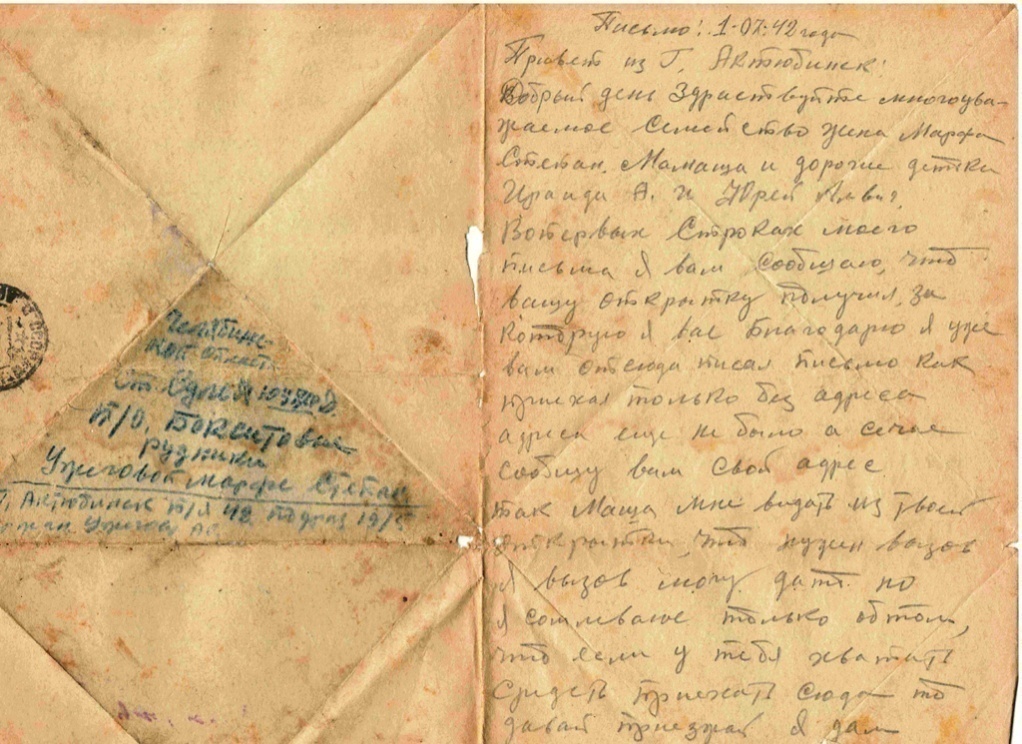 Челябинс-
кой област
Ст. Сулея ЮУЖД.
П/О, Бокситовые
рудники
Ужеговой Марфе Степан
Г, Актюбинск П/Я 42 подраз 19/5
Ужегов А
Письмо! 1-07-42 года
Привет из Г, Актюбинск!
Добрый день Здраствуйте многоува-
жаемое Семейство жена Марфа
Степан. Мамаша и дорогие детки
Ираида А. и Юрей
Вопервых Строках моего
письма Я вам Сообщаю, что
вашу открытку получил, за
которую я вас благодарю я уже
вам отсюда писал письмо как
приехал только без адреса
адреса еще не было а сечас
сообщу вам Свой адрес
так Маша мне видать из твоей
открытки, что нужен вызов
Я вызов могу дать но
Я сомневаюс только обтом,
что если у тебя хватит
Средств приехать Сюда то
давай приезжай Я дам